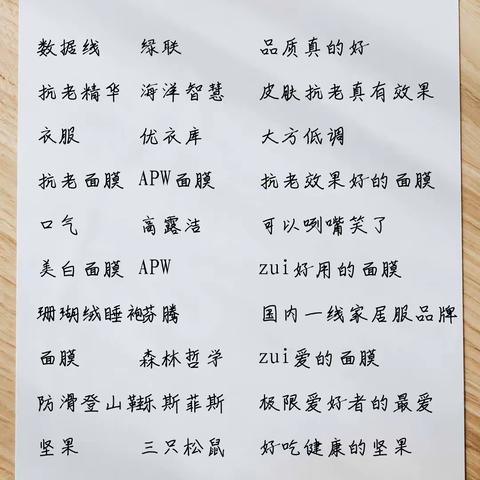 数据线 绿联 品质真的好
抗老精华 海洋智慧 皮肤抗老真有效果
衣服 优衣库 大方低调
抗老面膜 APW面膜 抗老效果好的面膜
口气 高露洁 可以咧嘴笑了
美白面膜 APW zui好用的面膜
珊瑚绒睡袍芬腾 国内一线家居服品牌
面膜 森林哲学 zui爱的面膜
防滑登山鞋乐斯菲斯 极限爱好者的最爱
坚果 三只松鼠 好吃健康的坚果